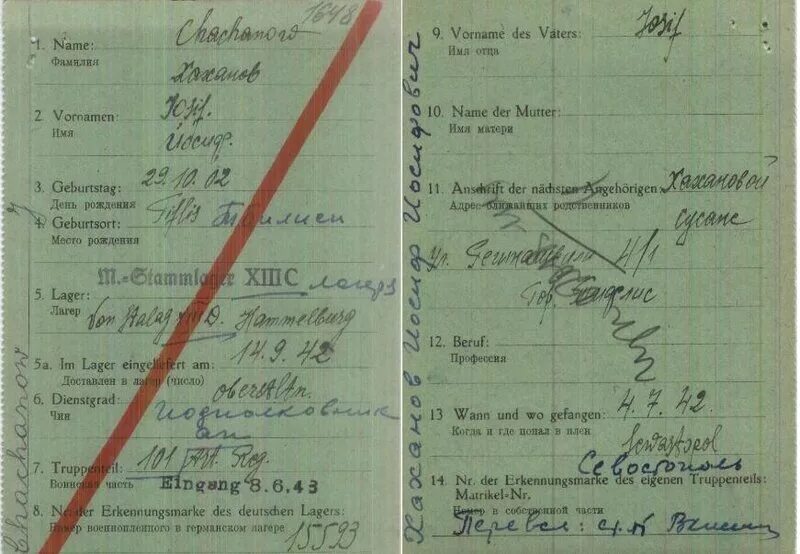 1648
1. Name: Chachanow
Фамилия Хаханов
2 Vornamen: Iosif.
Имя Иосиф.
3. Geburtstag: 29.10.02
День рождения
4. Geburtsort: Tiflis Тбилиси
Место рождения
M.-Stammlager XIII C лагерь
5. Lager: Von Stalag XIII D. Hammelburg
Лагерь
5a. Im Lager eingeliefert am: 14.9.42
Доставлен в лагерь (число)
6. Dienstgrad: oberstltn.
Чин подполковник
7. Truppenteil: 101 Art. Reg.
Воинская часть Eingang 8.6.43
8. Nr. der Erkennungsmarke des deutschen Lagers:
Номер военнопленного в германском лагере 15593
Chachanow J
Хаханов Иосиф Иосифович
9. Vorname des Vaters: Iosif
Имя отца
10. Name der Mutter:
Имя матери
11. Anschrift der nächsten Angehörigen: Хахановой
Адрес ближайших родственников сусане
ул. 4/1
Гор.
12. Beruf:
Профессия
13 Wann und wo gefangen: 4.7.42.
Когда и где попал в плен Sewastopol
Севостополь
14. Nr. der Erkennungsmarke des eigenen Truppenteils:
Matrikel-Nr.
Номер в собственной части
Перевел: